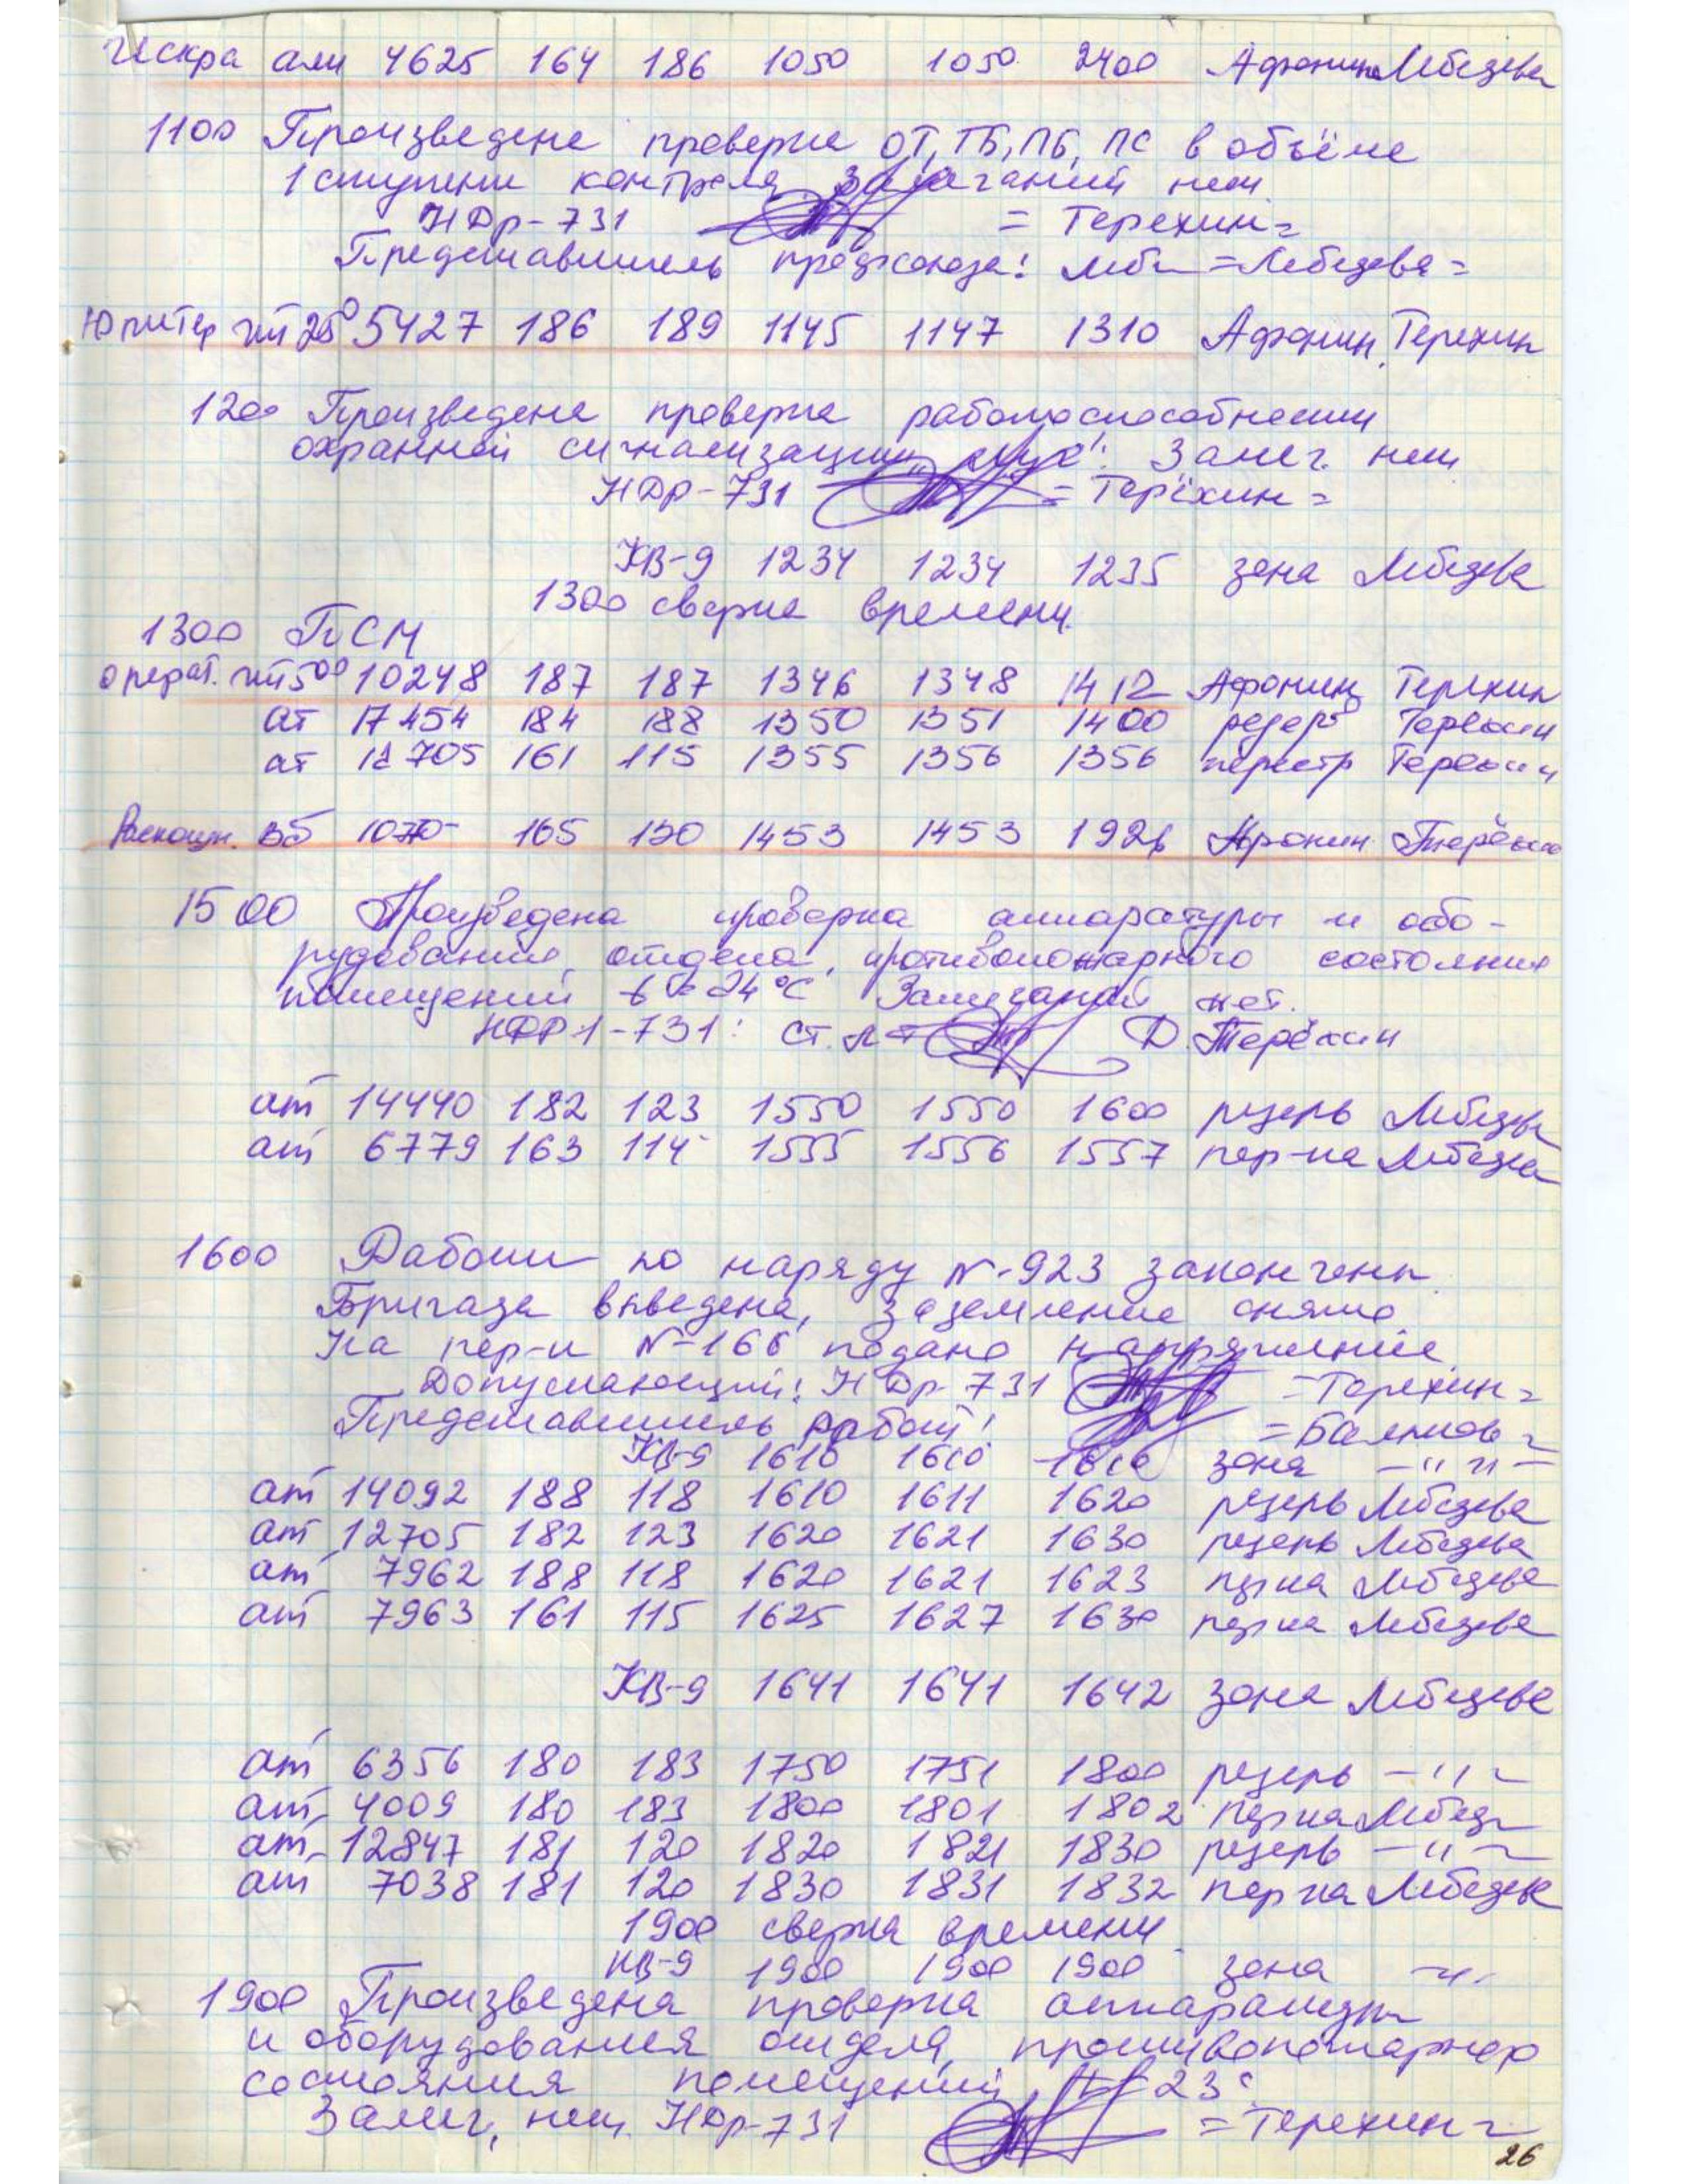 Искра али 4625 164 186 1050 1050 2400 Афонин Лебедева
1100 Произведена проверка ОТ, ТБ, ПБ, ПС в объёме
1 ступени контроля. Замечаний нет
НДр-731 = Терехин =
Представитель профсоюза: = Лебедева =
Юпитер чт 25⁰ 5427 186 189 1145 1147 1310 Афонин Терехин
1200 Произведена проверка работоспособности
охранной сигнализации Замеч. нет
НДр-731 = Терёхин =
КВ-9 1234 1234 1235 зона Лебедева
1300 сверка времени
1300 ПСМ
операт. чт 5⁰⁰ 10248 187 187 1346 1348 1412 Афонин Терехин
ат 17454 184 188 1350 1351 1400 резерв Терёхин
ат 12705 161 115 1355 1356 1356 перестр Терёхин
вб 1070 165 130 1453 1453 1926 Афонин Терёхин
1500 Произведена проверка аппаратуры и обо-
рудования отдела, противопожарного состояния
помещений t 24°C Замечаний нет.
НДР1-731: ст. л-т Д. Терёхин
ат 14440 182 123 1550 1550 1600 резерв Лебедева
ат 6779 163 114 1555 1556 1557 пер-ка Лебедева
1600 Работы по наряду №-923 закончены
Бригада выведена, заземление снято
На пер-к №-166 подано напряжение
Допускающий: НДр-731 = Терехин =
Представитель работ:
КВ-9 1610 1610 1610 зона — " —
ат 14092 188 118 1610 1611 1620 резерв Лебедева
ат 12705 182 123 1620 1621 1630 резерв Лебедева
ат 7962 188 118 1620 1621 1623 пер-ка Лебедева
ат 7963 161 115 1625 1627 1630 пер-ка Лебедева
КВ-9 1641 1641 1642 зона Лебедева
ат 6356 180 183 1750 1751 1800 резерв — " —
ат 4009 180 183 1800 1801 1802 пер-ка Лебед
ат 12847 181 120 1820 1821 1830 резерв — " —
ат 7038 181 120 1830 1831 1832 пер-ка Лебедева
1900 сверка времени
КВ-9 1900 1900 1900 зона — " —
1900 Произведена проверка аппаратуры
и оборудования отдела, противопожарного
состояния помещений, t 23°
Замеч. нет. НДр-731 = Терехин =
26